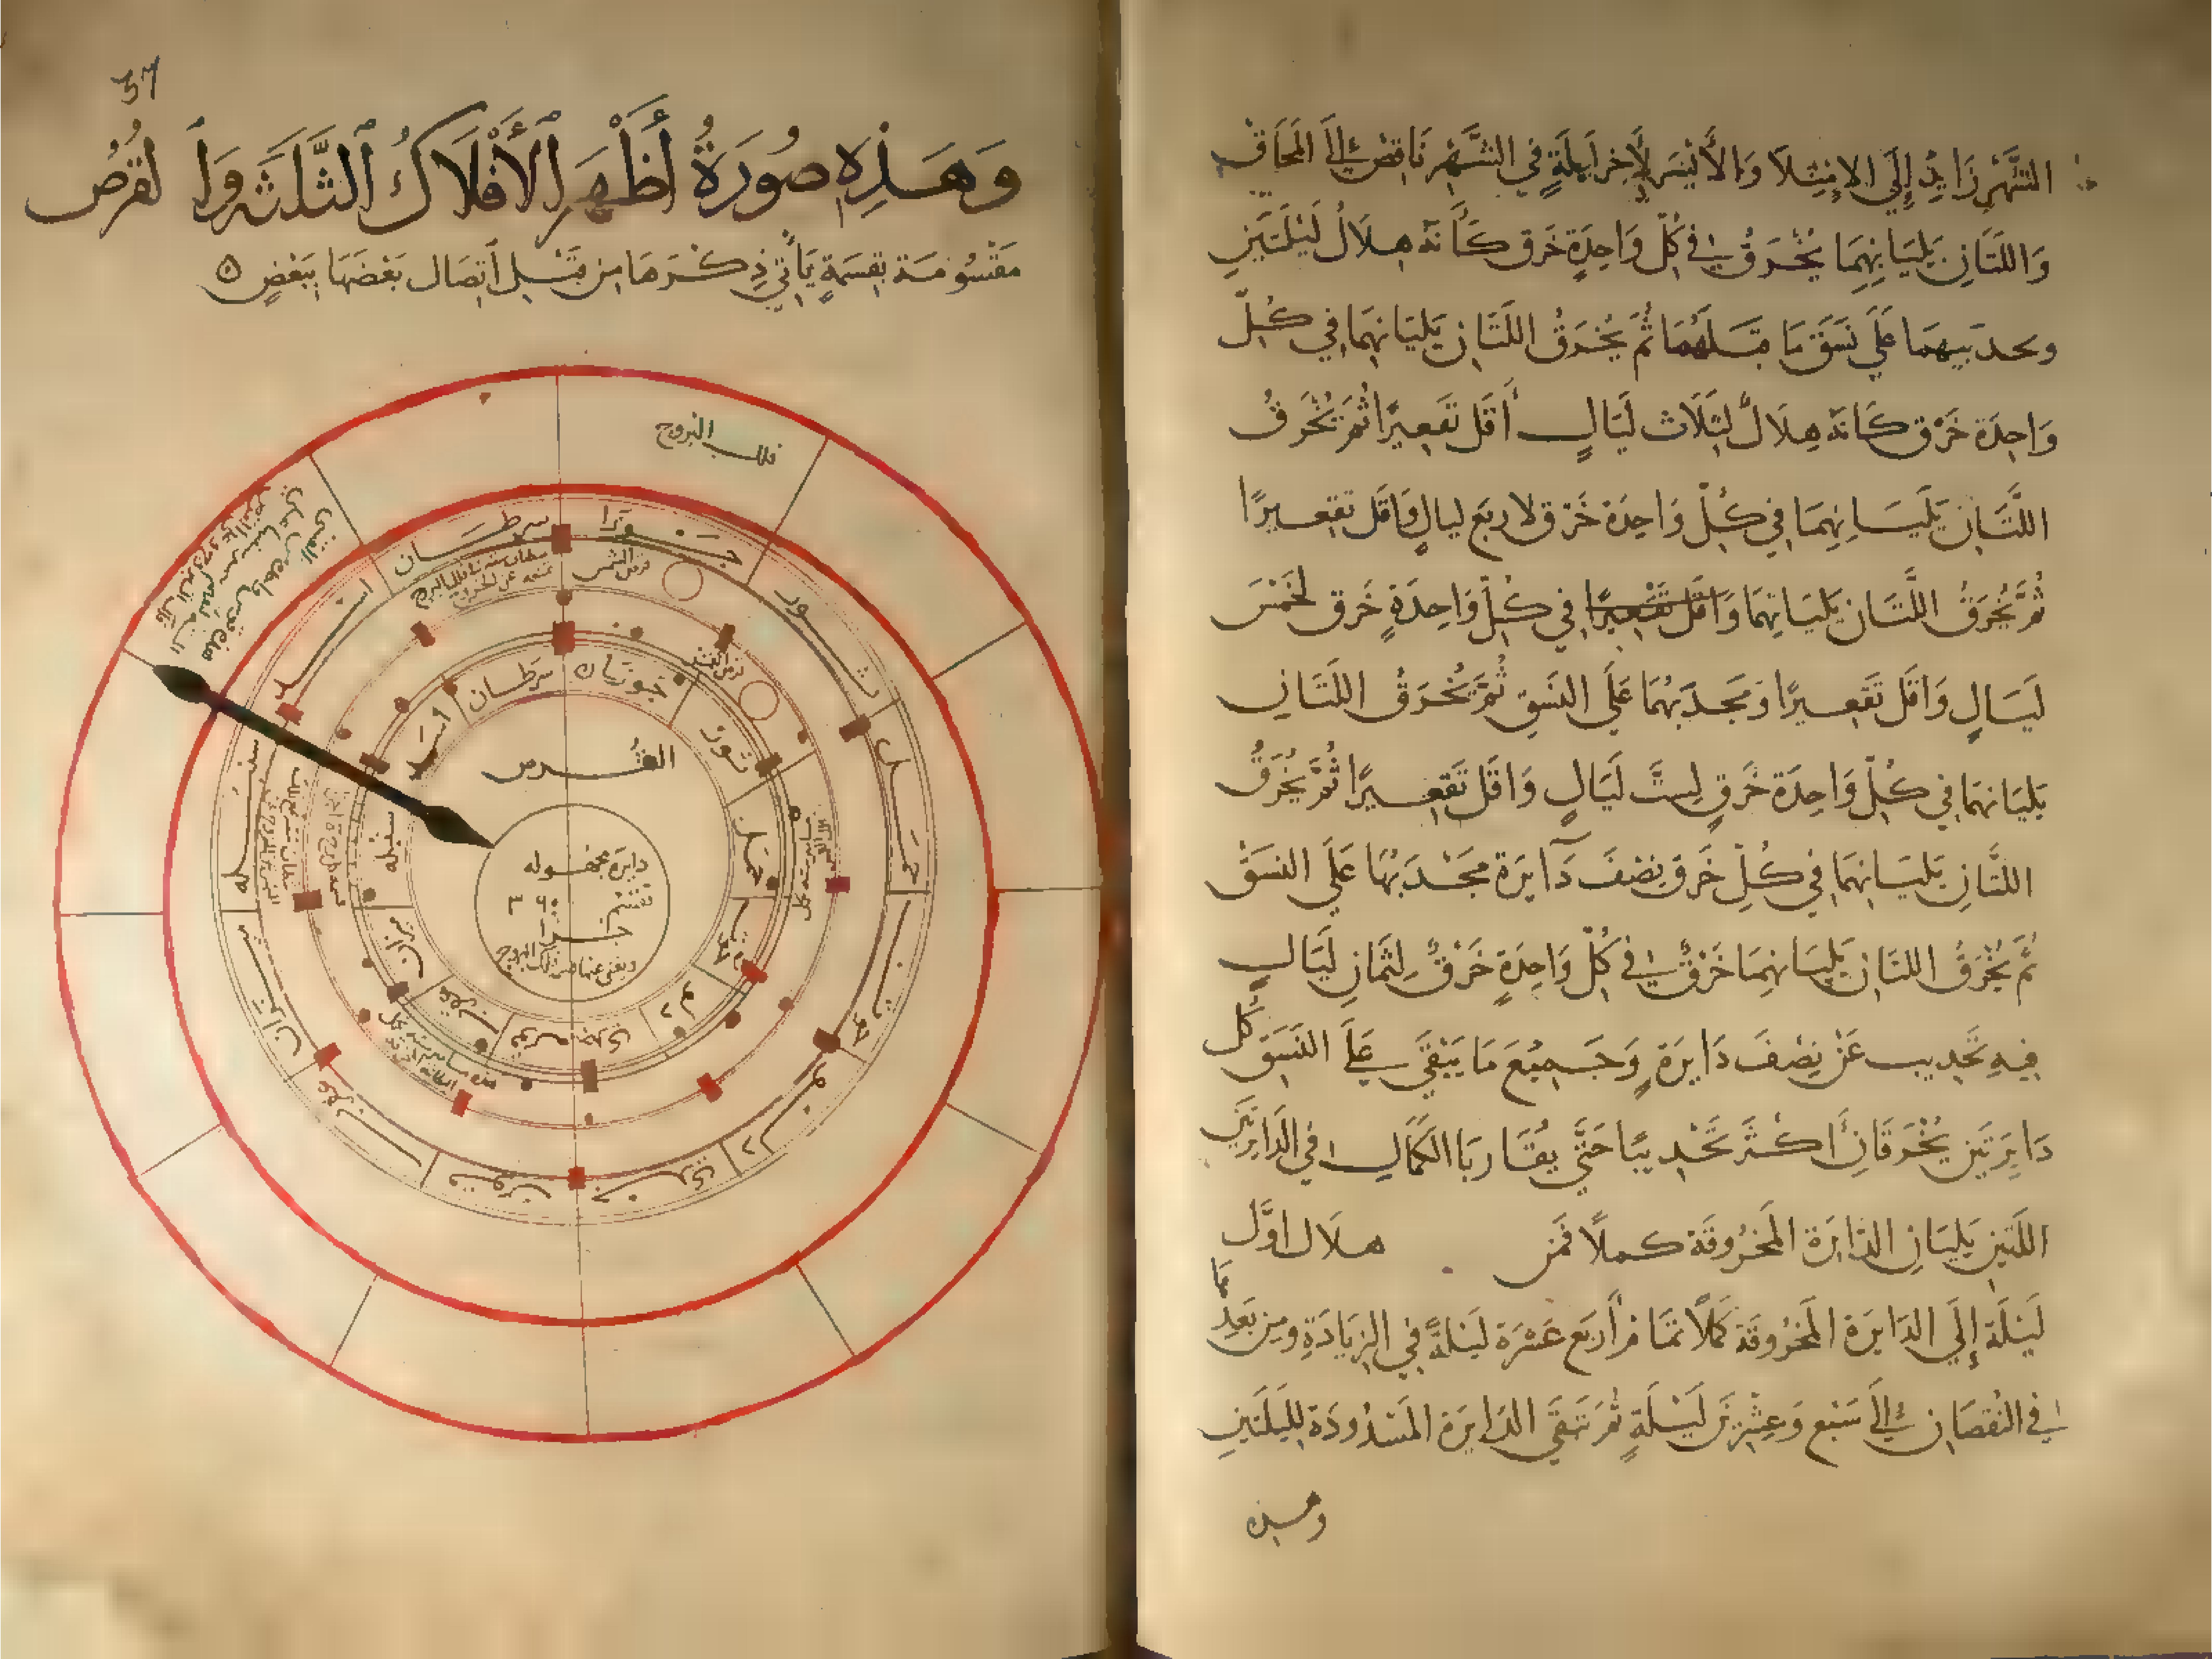 الشَّهْرِ زَايِدٌ إِلَى الامْتِلَا وَالأَيْسَر لِآخِر لَيْلَةٍ فِي الشَّهْرِ نَاقِصٌ إِلَى المَحَاقِ
وَاللَّتَانِ يَلِيَانِهِمَا يُخْرَقُ فِي كُلِّ وَاحِدَةٍ خَرق كَأَنَّهُ هِلَالُ لَيْلَتَيْنِ
وتحدبيهما عَلَى نَسَقِ مَا قَبْلَهُمَا ثُمَّ يُخْرَقُ اللَّتَانِ يَلِيَانِهِمَا فِي كُلّ
وَاحِدَة خَرْق كَانَهُ هِلَالٌ لِثَلَاثِ لَيَالٍ أَقَل تَقعِيرًا ثُمَّ يُخْرَقُ
اللَّتَانِ يَلِيَانِهِمَا فِي كُلّ وَاحِدَة خَرق لاربَع ليالٍ وَاقَل تقعيرًا
ثُمَّ يُخْرَقُ اللَّتَانِ يَلِيَانِهِمَا وَاقَل تَقْعِيرًا فِي كُلّ وَاحِدَةٍ خَرق لخَمْسِ
لَيَالٍ وَاقَل تَقَعِيرًا وَمَحْدَبهُمَا عَلَى النَسَقِ ثُمَّ يُخْرَقُ اللَّتَانِ
يَلِيَانِهِمَا فِي كُلّ وَاحِدَة خَرقٍ لِسِتّ لَيَالٍ وَاقَل تَقعِيرًا ثُمَّ يُخْرَقُ
اللَّتَانِ يَلِيَانِهِمَا فِي كُلّ خَرق نِصْفَ دَايرَة مَحْدَبهَا عَلَى النسَقْ
ثُمَّ يُخْرَقُ اللتَانِ يَلِيَانِهِمَا خَرْقٌ فِي كُلّ وَاحِدَةٍ خَرْقٌ لِثَمَانِ لَيَالٍ كل
فِيهِ تحْدِيب عَنْ نِصْفَ دَايرَةٍ وَجَمِيعَ مَا يَبْقَى عَلَى النَسَق
دَايِرَتَيْنِ يُخْرَقَانِ أَكْثَرَ تَحْدِيبًا حَتَّى يُقَارِبَا الكَمَالِ فِي الدَايِرَتَيْن
اللَتَيْنِ يَلِيَانِ الدَّايرَة المَخْرُوقَة كملًا فَمِنْ هلَال اوَّل
لَيْلَة إِلَى الدَايرَة المَخْرُوقَة كمَلًا تَمَامْ أَربَع عَشرَة لَيْلَةً فِي الزِيَادَةِ ومِن بَعدِ
فِي النُقصَانِ إِلَى سَبْعِ وَعِشْرِينَ لَيْلَةٍ ثُمَّ تَبْقَى الدَايرَة المَسْدُودَة لِلَيْلَتَيْنِ
وَهَذِهِ صُورَةُ أَظْهر الأَفْلَاكُ الثَّلَثَه وَالقُرُصُ
مَقْسُومَة بِقِسمَةٍ يَأتِي ذِكْرَهَا مِن قَبْلِ اتِصَال بَعْضَهَا بِبَعْضٍ
فلك البروج
سرطان
جوزا
ثور
حمل
حوت
دلو
جدي
قوس
عقرب
ميزان
سنبله
اسد
قرص الشمس
سرطان
ثور
حمل
دلو
جدي
قوس
عقرب
ميزان
سنبله
اسد
القرص
دايره مجهوله
تقسم ٣٦٠
جزا